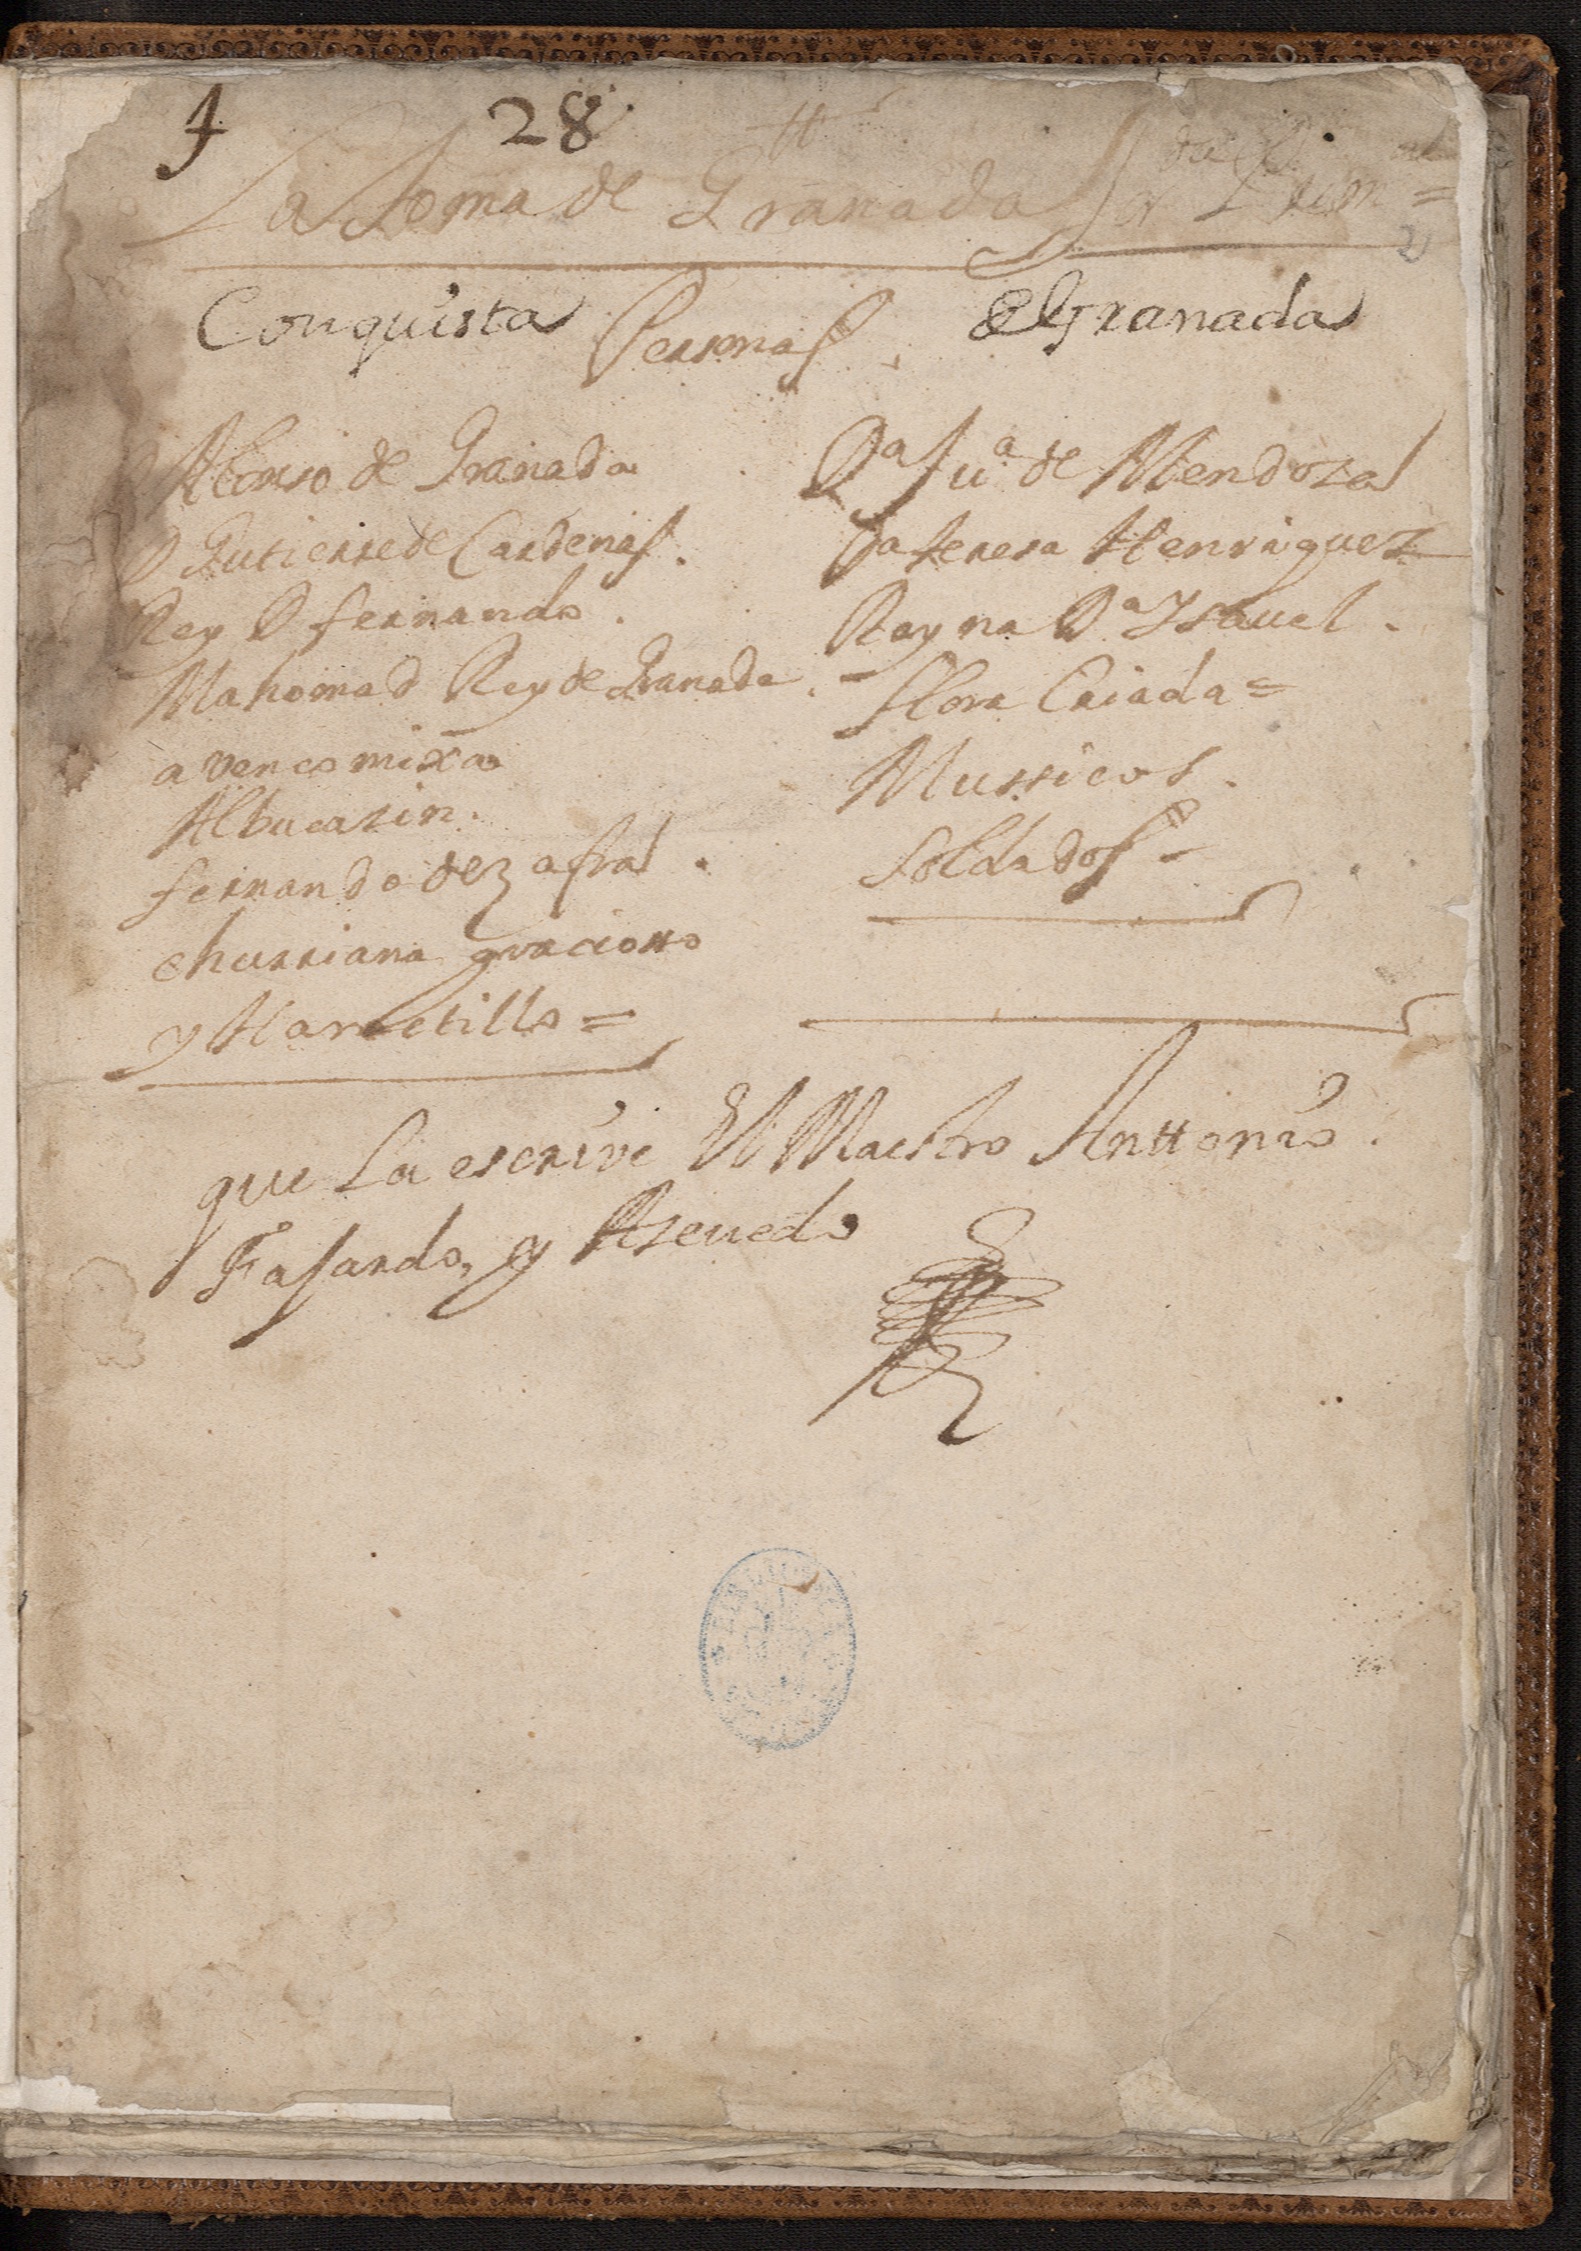 J 28
La toma de Granada Por
Conquista de Granada
Personas
Alonso de Granada
D Gutierre de Cardenas.
Rey D fernando.
Mahomad Rey de Granada.
avencomixa
Albucazin.
fernando de zafra.
churriana gracioso
y Hametillo =
Dª Juª de Mendoza
Da teresa Henriquez
Reyna Dª Ysauel.
flora Criada =
Mussicos.
soldados
que La escrive El Maestro Anttonio.
Fajardo, y Azeuedo